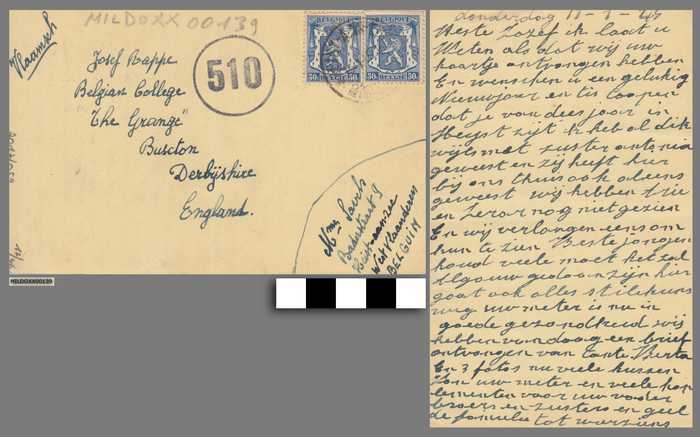 MILDOXX 00139
Vlaamsch
Josef Rappe
Belgian College
"The Grange"
Buxton
Derbyshire
England.
510
BELGIE-BELGIQUE
50c 50c 50c 50c
Mme Saels
Baderstraat 9
Heist-aan-zee
West Vlaanderen
BELGIUM
MILDOXX00139
donderdag 11-1-
Beste Jozef ik laat u
Weten als dat wij uw
kaartje ontvangen hebben
En wenschen u een gelukkig
Nieuwjaar en tis
dat je van dees jaar in
Heyst zijt Ik heb al dik
wijls met zuster antonia
geweest en zij heeft hier
bij ons thuis ook al eens
geweest wij hebben
en Zeror nog niet gezien
En wij verlangen eens om
hun te zien Beste jongen
houd vele moet het zal
Algouw gedaan zijn hier
gaat ook alles stillekens
weg uw meter is nu in
goede gezondheid wij
hebben vandaag een brief
ontvangen van tante Berta
En 3 fotos nu veele kussen
Van uw meter en veele kom
plementen voor uw vader
broers en zusters en geel
de familie tot weerziens